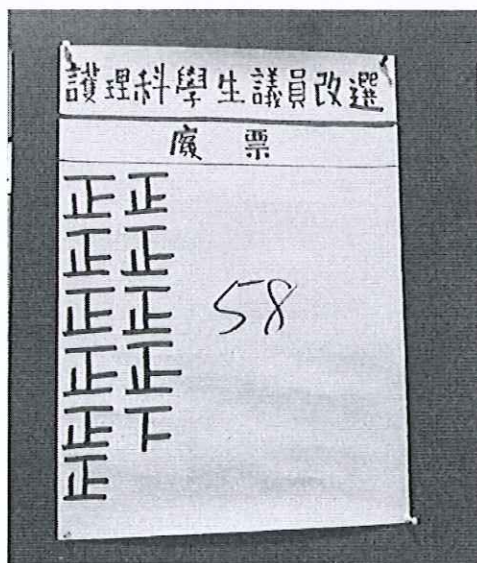 護理科學生議員改選
廢票
正正
正正
正正
正正
正下
正
58